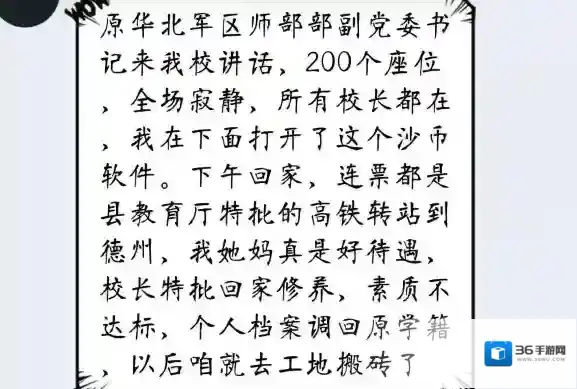 WOW
原华北军区师部部副党委书
记来我校讲话，200个座位
，全场寂静，所有校长都在
，我在下面打开了这个沙币
软件。下午回家，连票都是
县教育厅特批的高铁转站到
德州，我她妈真是好待遇，
校长特批回家修养，素质不
达标，个人档案调回原学籍
，以后咱就去工地搬砖了
36手游网
www.36wu.com